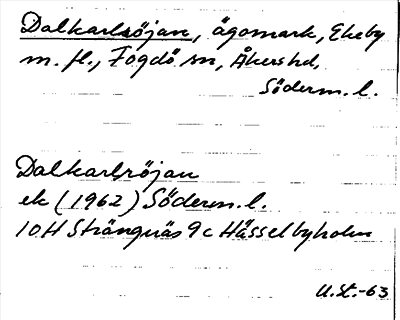 Dalkarlsöjan, ägomark, Ekeby
m. fl., Fogdö sn, Åkers hd,
Söderm. l.
Dalkarlröjan
ek (1962) Söderm. l.
10H Strängnäs 9c Hässelbyholm
U.St.-63